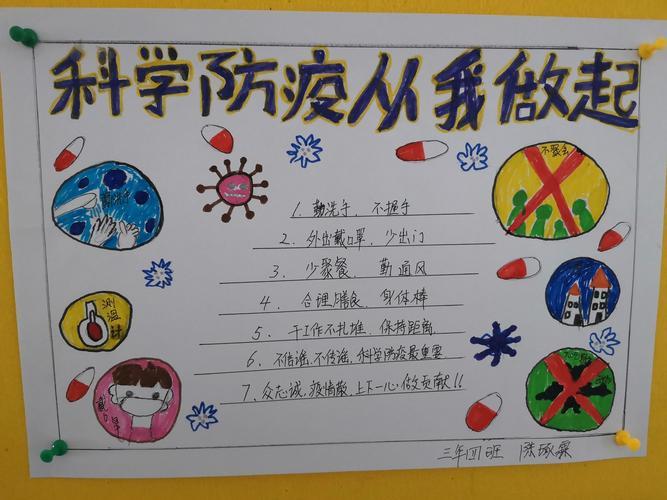 科学防疫从我做起
不聚会
勤洗手
1、勤洗手、不握手
2、外出戴口罩、少出门
3、少聚餐、勤通风
4、合理膳食、身体棒
测温计
5、干工作不扎堆、保持距离
6、不信谣、不传谣，科学防疫最重要
7、众志诚，疫情散，上下一心做贡献!!
戴口罩
三年四班